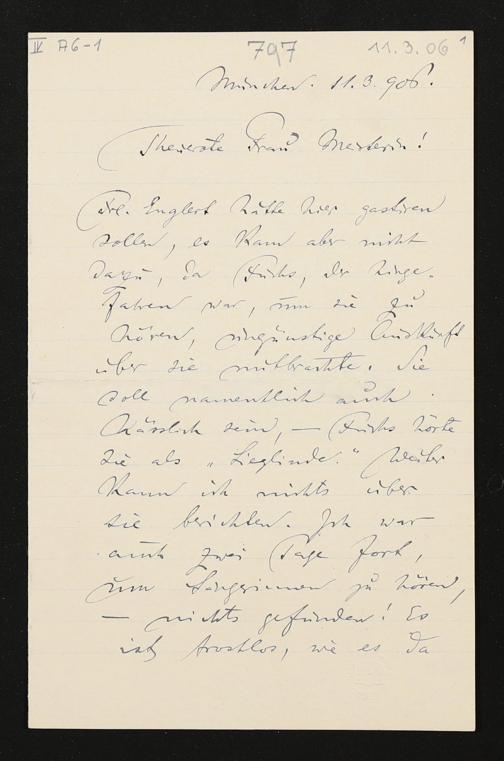 IV A6-1
797
11.3.06
1
München. 11.3.906.
Theuerste Frau Meisterin!
Frl. Englert hätte hier gastiren
sollen, es kam aber nicht
dazu, da Fuchs, der hinge-
fahren war, um sie zu
hören, ungünstige Auskunft
über sie mitbrachte. Sie
soll namentlich auch
hässlich sein, – Fuchs hörte
sie als „Sieglinde." Weiter
kann ich nichts über
sie berichten. Ich war
auch zwei Tage fort,
um Sängerinnen zu hören,
– nichts gefunden! Es
ist trostlos, wie es da